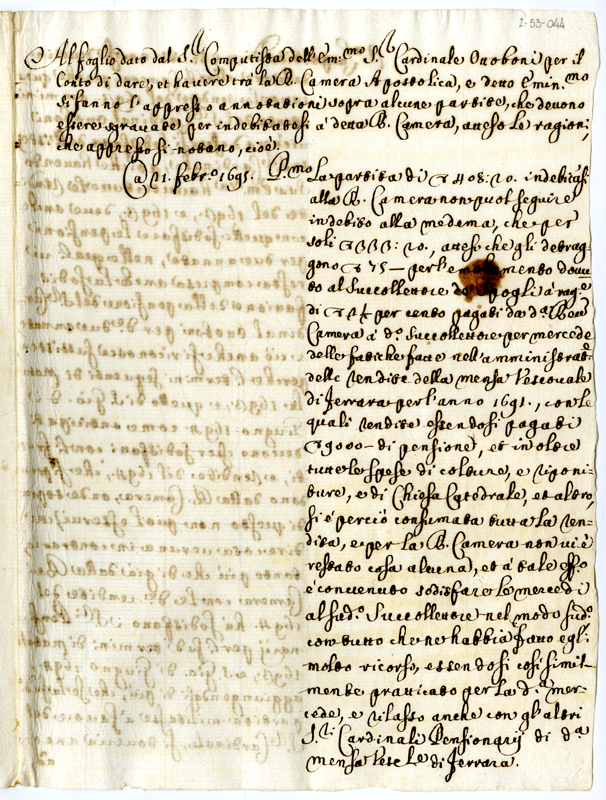 2-53-044
Al foglio dato dal S.r Computista dell'Em:mo S.r Cardinale Ottoboni per il
Conto di dare, et havere trà la R. Camera Apostolica, e detto Emin.mo
si fanno l'appresso annotationi sopra alcune partite, che devono
essere sgravate per indebitatosi à detta R. Camera, atteso le ragioni,
che appresso si notano, cioè.
A 21. Febr.o 1695. P.mo La partita di 408: 20. indebitasi
alla R. Camera non puol seguire
indebito alla medema, che per
soli 333: 20., attesi che gli detrag=
gono 75 — per l'emolumento dovu
to al Succollettore de Spogli à rag.e
di per cento pagati da d.a Rev.
Camera à d.o Succollettore per mercede
delle fatiche fatte nell'amministrat.
delle rendite della mensa Vescovale
di Ferrara per l'anno 1691., con le
quali rendite essendosi pagati
9000 — di pensione, et in oltre
tutte le spese di colture, e riponi=
ture, e di Chiesa Catedrale, et altro,
si è perciò consumata tutta la ren=
dita, e per la R. Camera non vi è
restato cosa alcuna, et à tale eff.o
è convenuto sodisfare le mercedi
al sud.o Succollettore nel modo sud.o
con tutto che ne habbia fatto egli
molto ricorso, essendosi così simil=
mente pratticato per la d.a mer=
cede, e rilasso anche con gl'altri
S.ri Cardinali Pensionarij di d.a
mensa Vesc.le di Ferrara.